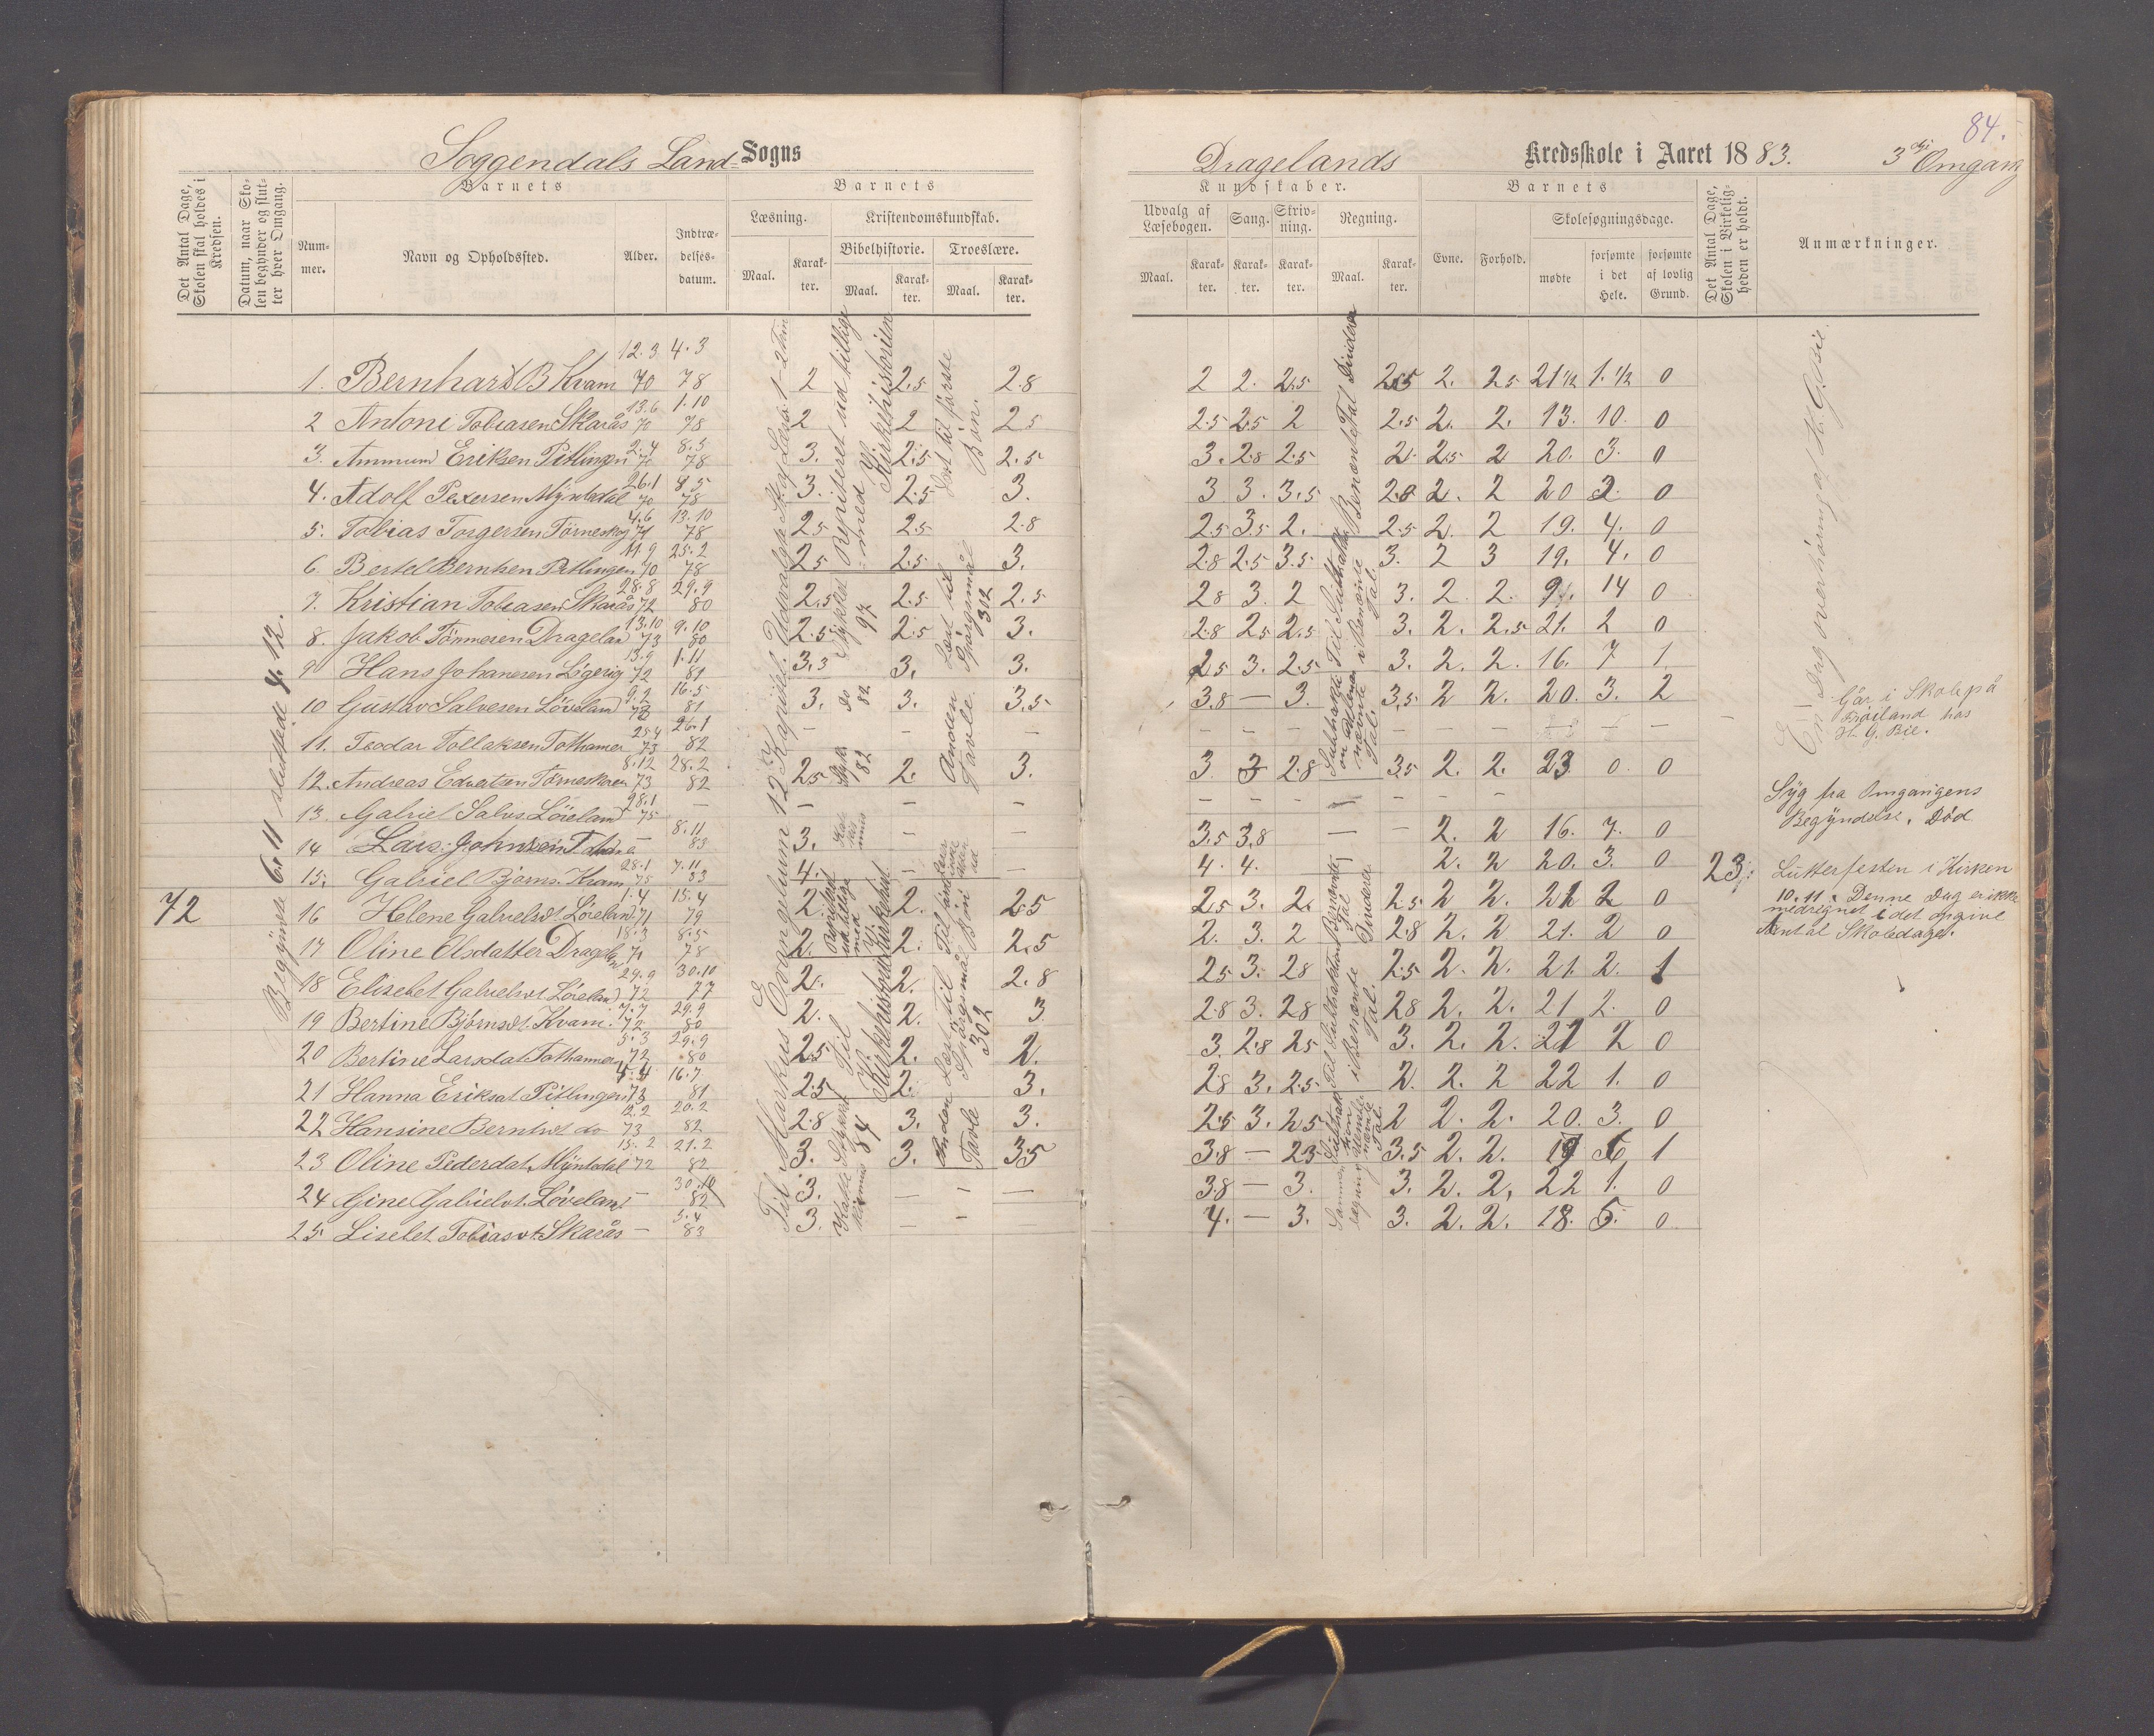 84.
Soggendals Land- Sogns
Dragelands Kredsskole i Aaret 1883. 3die Omgang
Det Antal Dage, Skolen skal holdes i Kredsen.
Datum, naar Skolen begynder og slutter hver Omgang.
Barnets
Nummer.
Navn og Opholdssted.
Alder.
Indtrædelsesdatum.
Barnets
Læsning.
Maal.
Karakter.
Kristendomskundskab.
Bibelhistorie.
Maal.
Karakter.
Troeslære.
Maal.
Karakter.
Kundskaber.
Udvalg af Læsebogen.
Maal.
Karakter.
Sang.
Karakter.
Skrivning.
Karakter.
Regning.
Maal.
Karakter.
Barnets
Evne.
Forhold.
Skolesøgningsdage.
mødte
forsømte i det Hele.
forsømte af lovlig Grund.
Det Antal Dage, Skolen i Virkeligheden er holdt.
Anmærkninger.
72
Begyndte 6.11 sluttede 4.12.
1. Bernhard B Kvam 12.3 70 4.3 78 2 2.5 2.8 2 2. 2.5 2.5 2. 2.5 21 1/2 1. 1/2 0
2 Antoni Tobiasen Skarås 13.6 70 1.10 78 2 2 2.5 2.5 2.5 2 2.5 2. 2. 13. 10. 0
3. Ammund Eriksen Pitlingen 2.4 8.5 78 3. 2.5 2.5 3. 2.8 2.5 2. 2.5 2 20. 3. 0
4. Adolf Petersen Myndedal 26.1 70 8.5 78 3. 2.5 3. 3 3. 3.5 2.8 2. 2 20 3. 0
5. Tobias Torgersen Törneskog 4.6 71 13.10 78 2.5 2.5 2.8 2.5 3.5 2. 2.5 2. 2 19. 4. 0
6. Bertel Berntsen Pitlingen 11.9 70 25.2 78 2.5 2.5 3. 2.8 2.5 3.5 3. 2 3 19. 4. 0
7. Kristian Tobiasen Skarås 28.8 72 29.9 80 2.5 2.5 2.5 2.8 3. 2 3. 2. 2. 9. 14 0
8. Jakob Tönnesen Drageland 13.10 73 9.10 80 2.5 2.5 3. 2.8 2.5 2.5 3. 2. 2.5 21. 2 0
9 Hans Johanesen Ligerig 13.9 72 1.11 81 3.3 3. 3. 2.5 3. 2.5 3. 2. 2. 16. 7 1.
10 Gustav Salvesen Löveland 9.2 16.5 81 3. 3. 3.5 3.8 — 3. 3.5 2 2. 20. 3. 2
11. Teodar Tollaksen Tothamer 25.4 73 26.1 82 — — — — — — — — —
Går i Skole på Fröiland hos H. G. Bie.
12. Andreas Edvatsen Törneskoen 8.12 73 28.2 82 2.5 2. 3. 3. 3 2.8 3.5 2. 2. 23. 0. 0
13. Gabriel Salvs. Löveland 28.1 75 — — — — — — — — — — —
Syg fra Omgangens Begyndelse. Död
14 Lars Johnsen — 8.11 83 3. — — 3.5 3.8 — — 2. 2 16. 7. 0
15. Gabriel Bjørns. Kvam 28.1 75 7.11 83 4. — — 4. 4. 2. 2 20. 3. 0
23.
Lutterfesten i Kirken 10.11. Denne Dag er ikke medregnet i det opgivne Antal Skoledage.
16 Helene Gabrielsdt. Löveland 1.4 71 15.4 79 2. 2. 2.5 2.5 3. 2. 2.5 2 2. 21 2 0
17 Oline Olsdatter Drageland 18.3 71 8.5 78 2. 2. 2.5 2. 3. 2 2.8 2. 2 21. 2 0
18 Elisebet Gabrielsdt Löveland 29.9 72 30.10 77 2. 2. 2.8 2.5 3. 2.8 2.5 2. 2. 21. 2. 1
19 Bertine Bjørnsdt. Kvam. 7.7 72 29.9 80 2. 2. 3 2.8 3. 2.8 2.8 2. 2. 21 2. 0
20 Bertine Larsdat. Tothamer 5.3 72 29.9 80 2.5 2. 2. 3. 2.8 2.5 3. 2. 2. 21 2 0
21 Hanna Eriksdt Pitlingen 4.4 73 16.7 81 2.5 2. 3. 2.8 3. 2.5 2. 2. 2 22 1. 0
22 Hansine Berntsdt do 12.2 73 20.2 82 2.8 3. 3. 2.5 3. 2.5 2 2. 2. 20. 3. 0
23 Oline Pedersdat. Myndedal 15.2 72 21.2 82 3. 3. 3.5 3.8 — 2.5 3.5 2. 2. 6 1
24 Gine Gabrielsdt. Löveland — 30.10 82 3. — — — 3.8 — 3. 3. 2. 2. 22 1. 0
25. Lisebet Tobiasdt. Skarås — 5.4 83 3. — — 4. — 3. 3. 2. 2. 18. 5. 0
Til Markus Evangelium 12 Kapitel. Udvalgte St. af Læseb. 1-2 Trin
Repiteret ud tillige med Kirkehistorien
Stykket 97
do 82
Styk. 82
Repiteret ud tillige med Kirkehist.
Til Kirkehistorien
Stykket 84
Læst til første Bön.
Læst til Spørgsmål 312
Anden Tavle.
Læst Til Spörgsmål 302
Anden Tavle
Benævnte Tal Dividere
Til Subtraktion i Benævnte Tal.
En Dag overhöring af H. G. Bie.